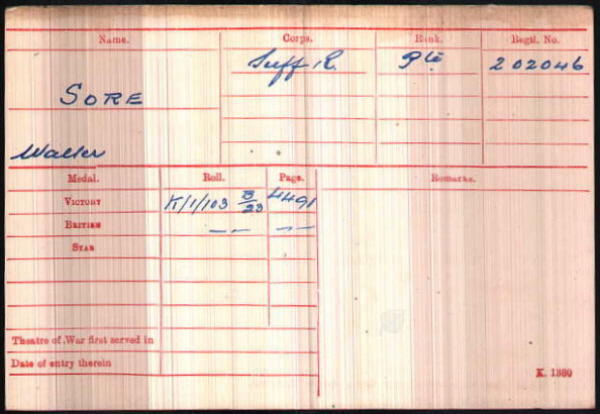 Name. Corps. Rank. Regtl. No.
Suff. R. Pte 202046
SORE
Walter
Medal. Roll. Page. Remarks.
VICTORY K/1/103 B/23 4491
BRITISH —„— —„—
STAR
Theatre of War first served in
Date of entry therein
K. 1380